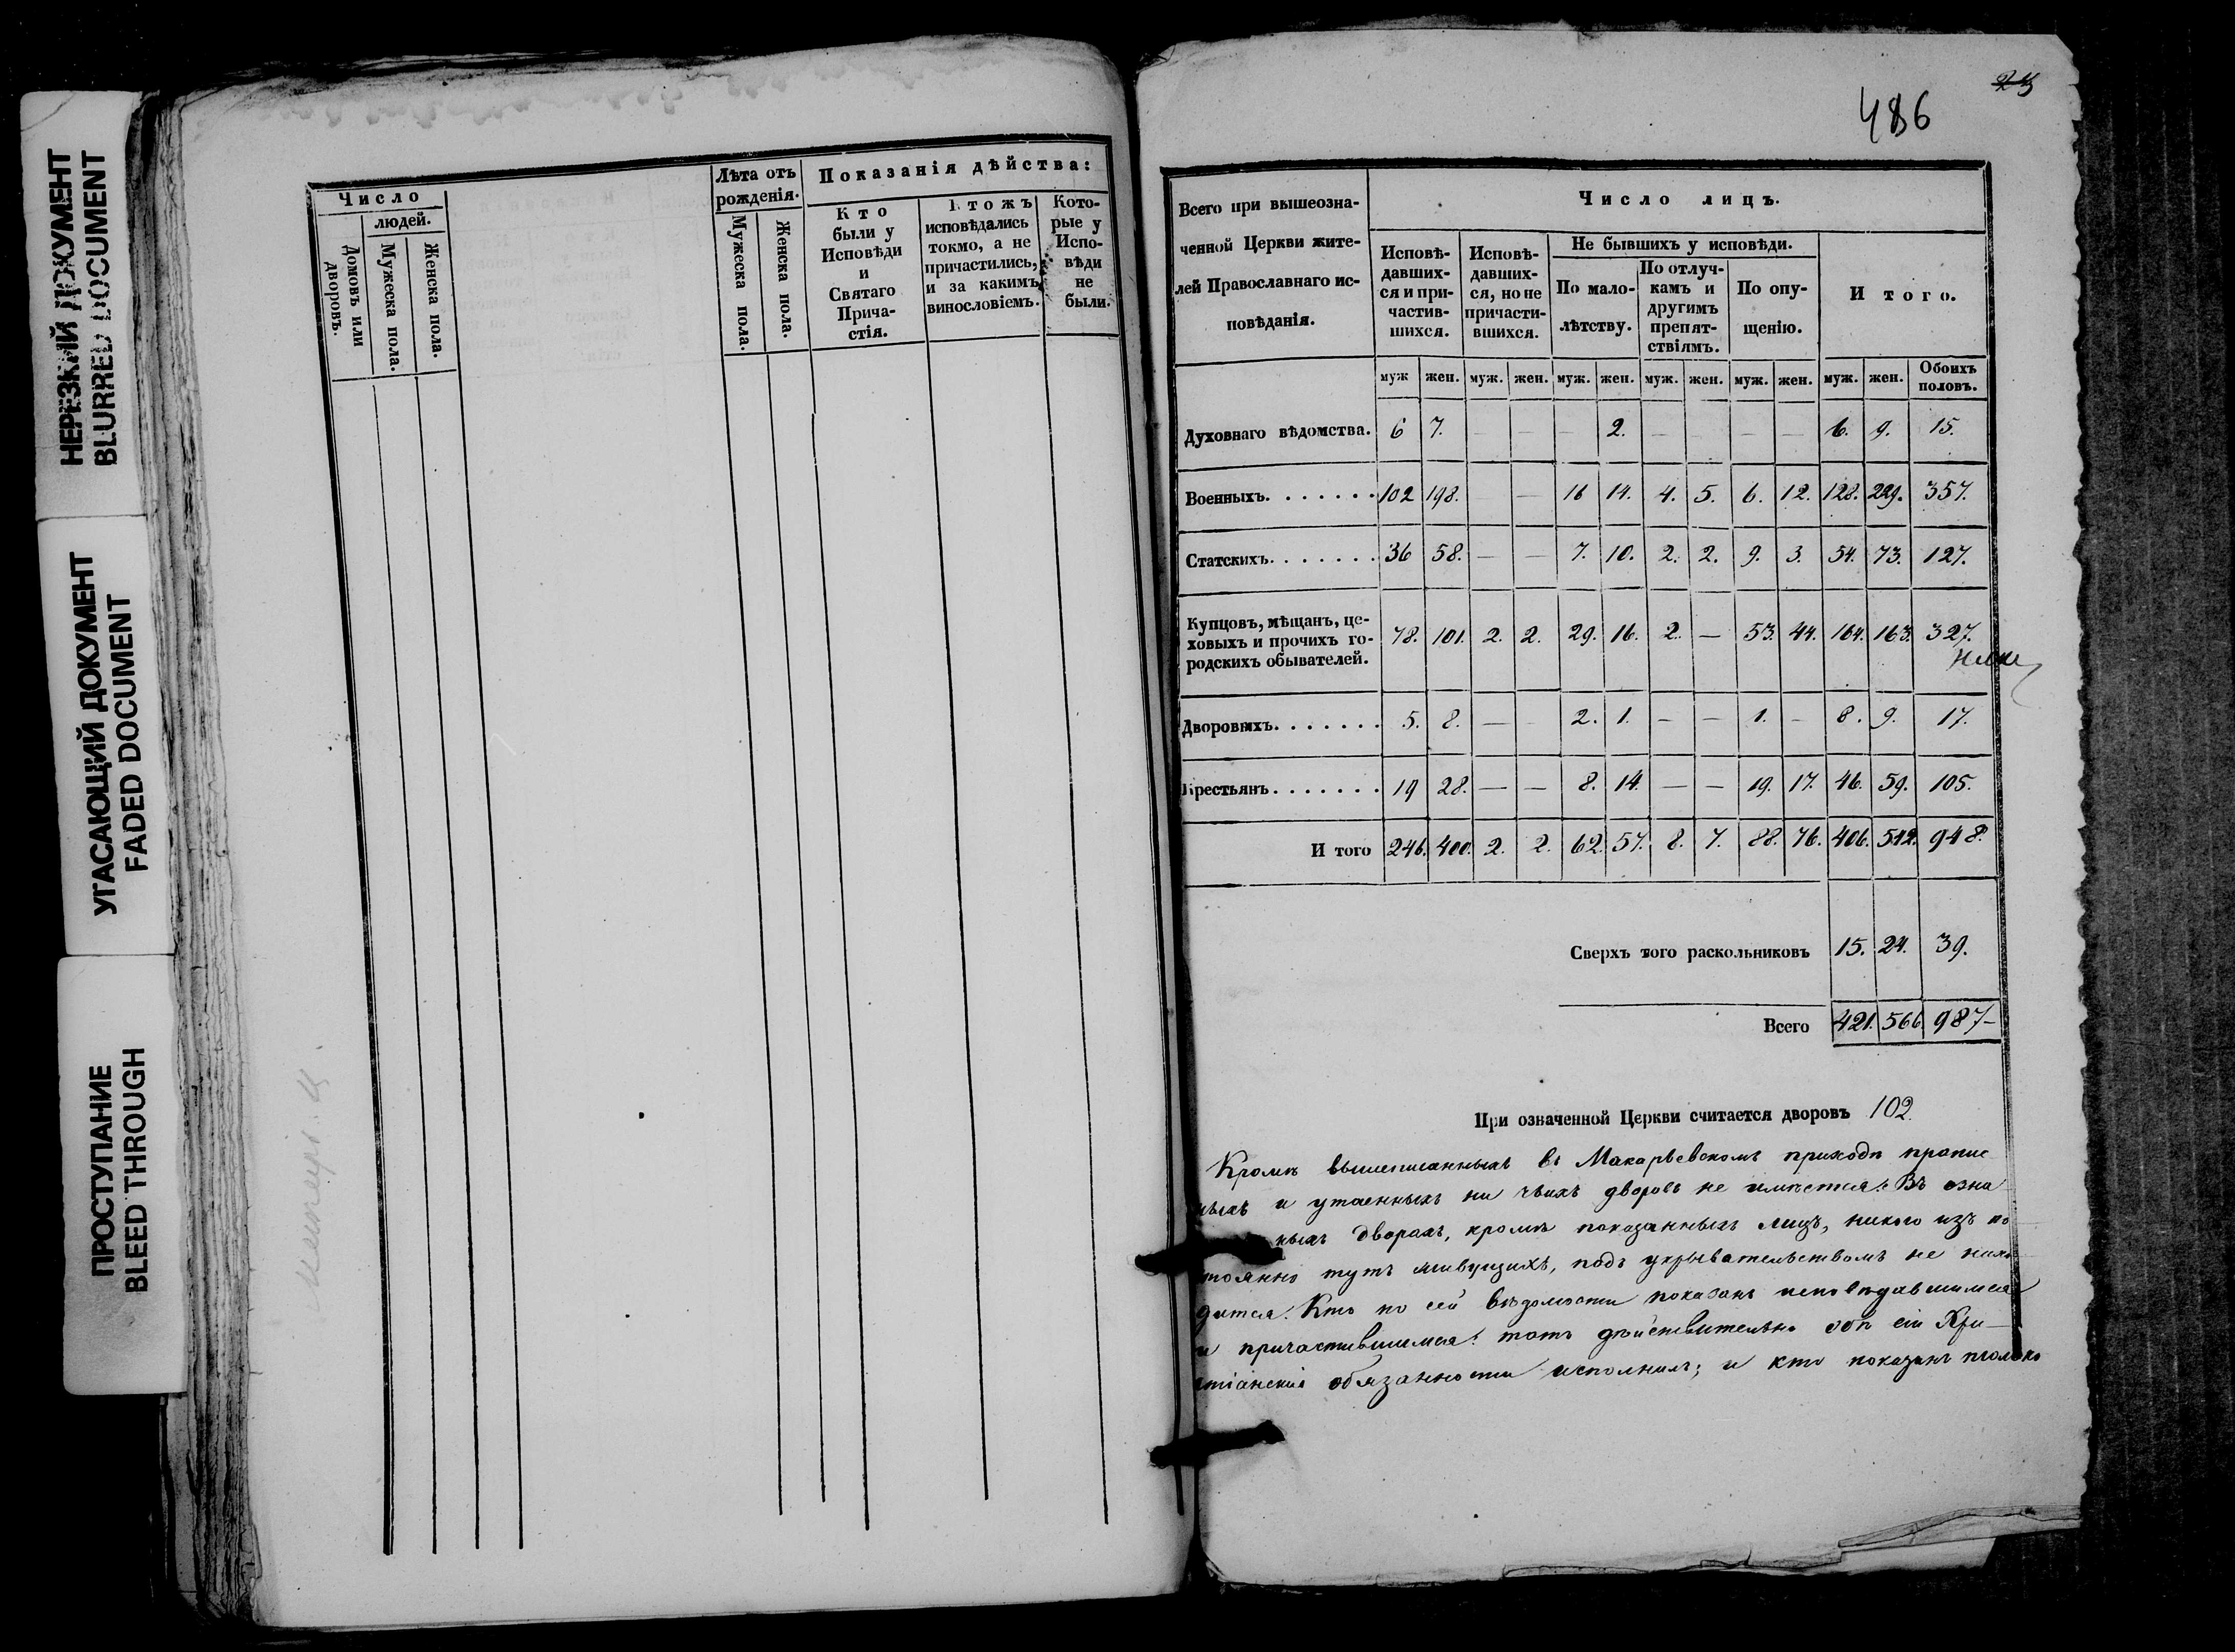 НЕРЕЗКИЙ ДОКУМЕНТ
BLURRED DOCUMENT
УГАСАЮЩИЙ ДОКУМЕНТ
FADED DOCUMENT
ПРОСТУПАНИЕ
BLEED THROUGH
Число
людей.
Домовъ или дворовъ.
Мужеска пола.
Женска пола.
Лѣта отъ
рожденія.
Мужеска пола.
Женска пола.
Показанія дѣйства:
Кто
были у
Исповѣди
и
Святаго
Прича-
стія.
Ктожъ
исповѣдались
токмо, а не
причастились,
и за какимъ
винословіемъ.
Кото-
рые у
Испо-
вѣди
не
были.
486
Всего при вышеозна-
ченной Церкви жите-
лей Православнаго ис-
повѣданія.
Число лицъ.
Исповѣ-
давших-
ся и при-
частив-
шихся.
Исповѣ-
давших-
ся, но не
причасти-
вшихся.
Не бывшихъ у исповѣди.
По мало-
лѣтству.
По отлуч-
камъ и
другимъ
препят-
ствіямъ.
По опу-
щенію.
И того.
муж жен. муж. жен. муж. жен. муж. жен. муж. жен. муж. жен. Обоихъ половъ.
Духовнаго вѣдомства. 6 7. — — — 2. — — — — 6. 9. 15.
Военныхъ. . . . . . . 102 198. — — 16 14. 4. 5. 6. 12. 128. 229. 357.
Статскихъ. . . . . . . 36 58. — — 7. 10. 2. 2. 9. 3. 54. 73. 127.
Купцовъ, мѣщанъ, це-
ховыхъ и прочихъ го-
родскихъ обывателей. 78. 101. 2. 2. 29. 16. 2. — 53. 44. 164. 163. 327.
Дворовыхъ. . . . . . . 5. 8. — — 2. 1. — — 1. — 8. 9. 17.
Крестьянъ. . . . . . . 19 28. — — 8. 14. — — 19. 17. 46. 59. 105.
И того 246. 400. 2. 2. 62. 57. 8. 7. 88. 76. 406. 542. 948.
Сверхъ того раскольниковъ 15. 24. 39.
Всего 421. 566 987—
При означенной Церкви считается дворовъ 102
Кромѣ вышеписанныхъ въ Макарьевскомъ приходѣ пропис
ныхъ и утаенныхъ ни чьихъ дворовъ не имѣется. Въ озна
ныхъ дворахъ, кромѣ показанныхъ лицъ, никого изъ по
стоянно тутъ живущихъ, подъ укрывательствомъ не нахо
дится. Кто по сей вѣдомости показанъ исповѣдавшимся
и причастившимся: тотъ дѣйствительно обѣ сіи Хри—
стіанскія обязанности исполнилъ; и кто показанъ только